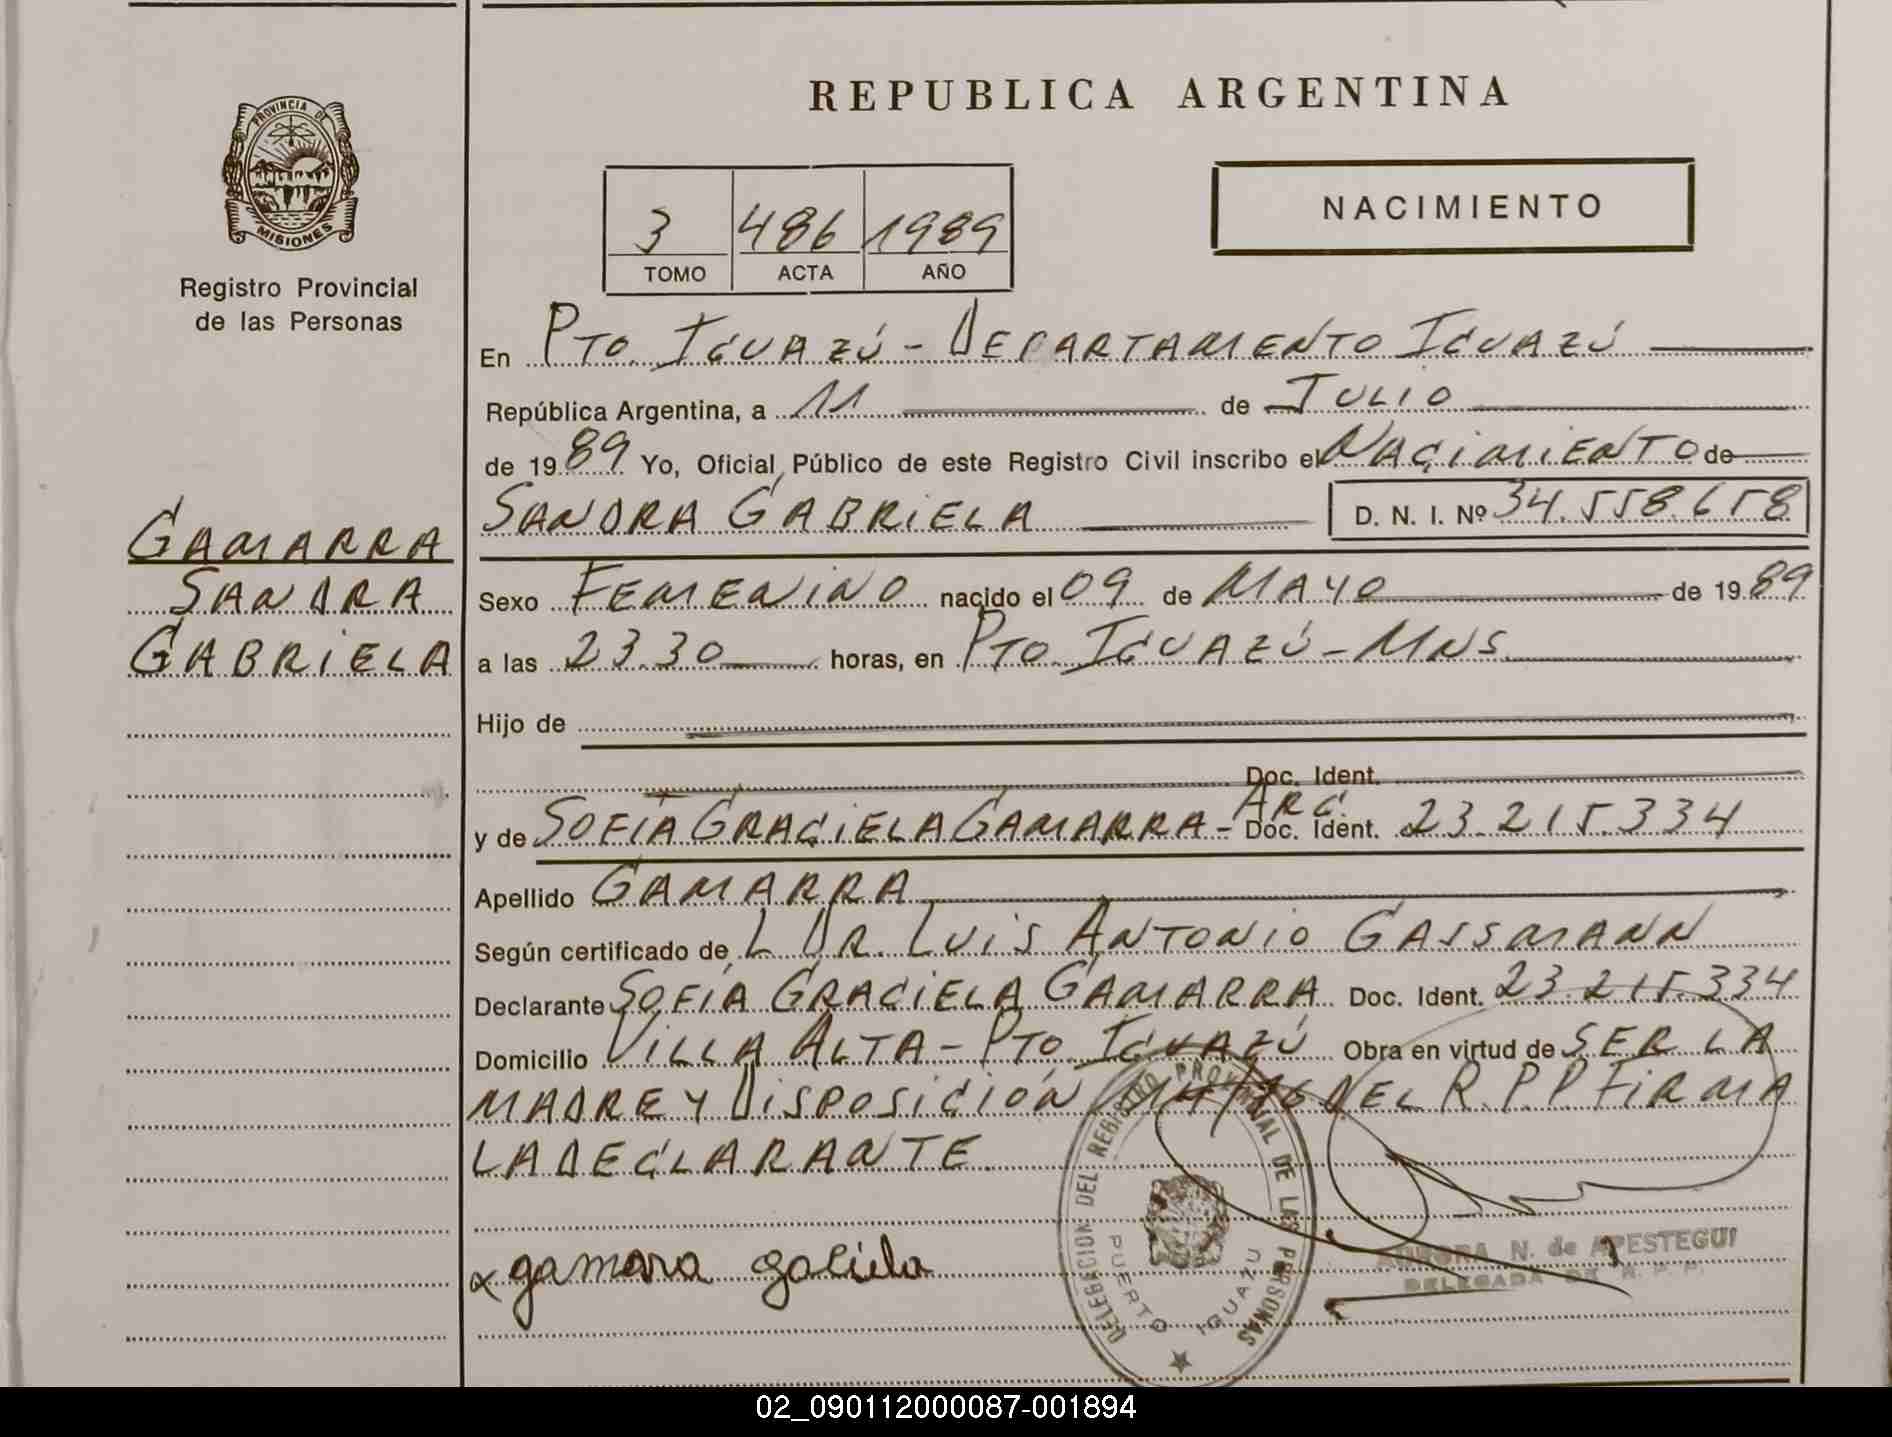 PROVINCIA DE
MISIONES
Registro Provincial
de las Personas
GAMARRA
SANDRA
GABRIELA
REPUBLICA ARGENTINA
3 486 1989
TOMO ACTA AÑO
NACIMIENTO
En PTO. IGUAZÚ - DEPARTAMENTO IGUAZÚ
República Argentina, a 11 de JULIO
de 1989 Yo, Oficial Público de este Registro Civil inscribo el NACIMIENTO de
SANDRA GABRIELA D. N. I. Nº 34.558.658
Sexo FEMENINO nacido el 09 de MAYO de 1989
a las 23.30 horas, en PTO. IGUAZÚ - MNS.
Hijo de
Doc. Ident.
ARG.
y de SOFÍA GRACIELA GAMARRA - Doc. Ident. 23.215.334
Apellido GAMARRA
Según certificado de L DR. LUIS ANTONIO GASSMANN
Declarante SOFÍA GRACIELA GAMARRA Doc. Ident. 23.215.334
Domicilio VILLA ALTA - PTO. IGUAZÚ Obra en virtud de SER LA
MADRE Y DISPOSICIÓN DEL R.P.P FIRMA
LA DECLARANTE.
DELEGACION DEL REGISTRO PROVINCIAL DE LAS PERSONAS
PUERTO IGUAZU
gamara
AURORA N. de APESTEGUI
DELEGADA DE R. P. P.
02_090112000087-001894